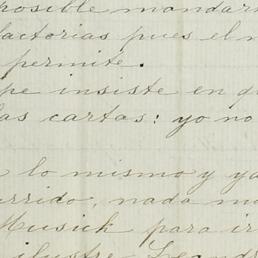 posible mandar
factorias pues el
permite.
pe insiste en
las cartas: yo no
lo mismo y ya
rrido, nada
Musick para ir
ilustre Leandr